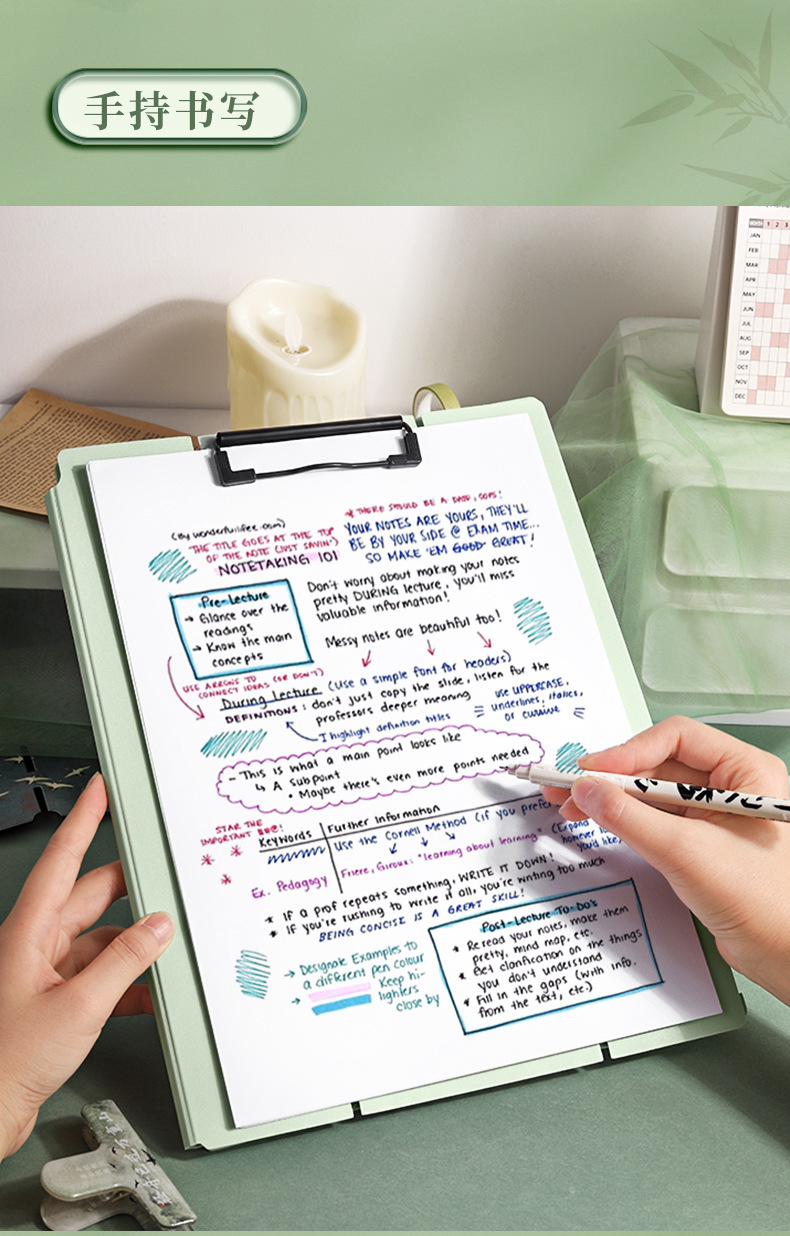 手持书写
JAN
FEB
MAR
APR
MAY
JUN
JUL
AUG
SEP
OCT
NOV
DEC
1 2 3
(By wonderfullifee.osm)
THE TITLE GOES AT THE TOP
OF THE NOTE (JUST SAYIN')
NOTETAKING 101
* THERE SHOULD BE A DATE, OOPS!
YOUR NOTES ARE YOURS, THEY'LL
BE BY YOUR SIDE @ EXAM TIME...
SO MAKE 'EM GOOD GREAT!
Pre-Lecture
→ Glance over the
readings
→ Know the main
concepts
Don't worry about making your notes
pretty DURING lecture, you'll miss
valuable information!
Messy notes are beautiful too!
USE ARROWS TO
CONNECT IDEAS (OR DON'T)
During Lecture (Use a simple font for headers)
DEFINITIONS: don't just copy the slide, listen for the
professors deeper meaning
I highlight definition titles
use UPPERCASE,
underlines, italics,
or cursive
- This is what a main point looks like
↳ A subpoint
• Maybe there's even more points needed
STAR THE
IMPORTANT
Keywords
Further Information
Use the Cornell Method (if you prefer
(Expand
however
you'd like)
Ex. Pedagogy
Friere, Giroux: "learning about learning"
* If a prof repeats something, WRITE IT DOWN!
* If you're rushing to write it all, you're writing too much
BEING CONCISE IS A GREAT SKILL!
→ Designate Examples to
a different pen colour
→ Keep hi-
lighters
close by
Post-Lecture To-Do's
* Reread your notes, make them
pretty, mind map, etc.
* Get clarification on the things
you don't understand
* Fill in the gaps (with info.
from the text, etc.)